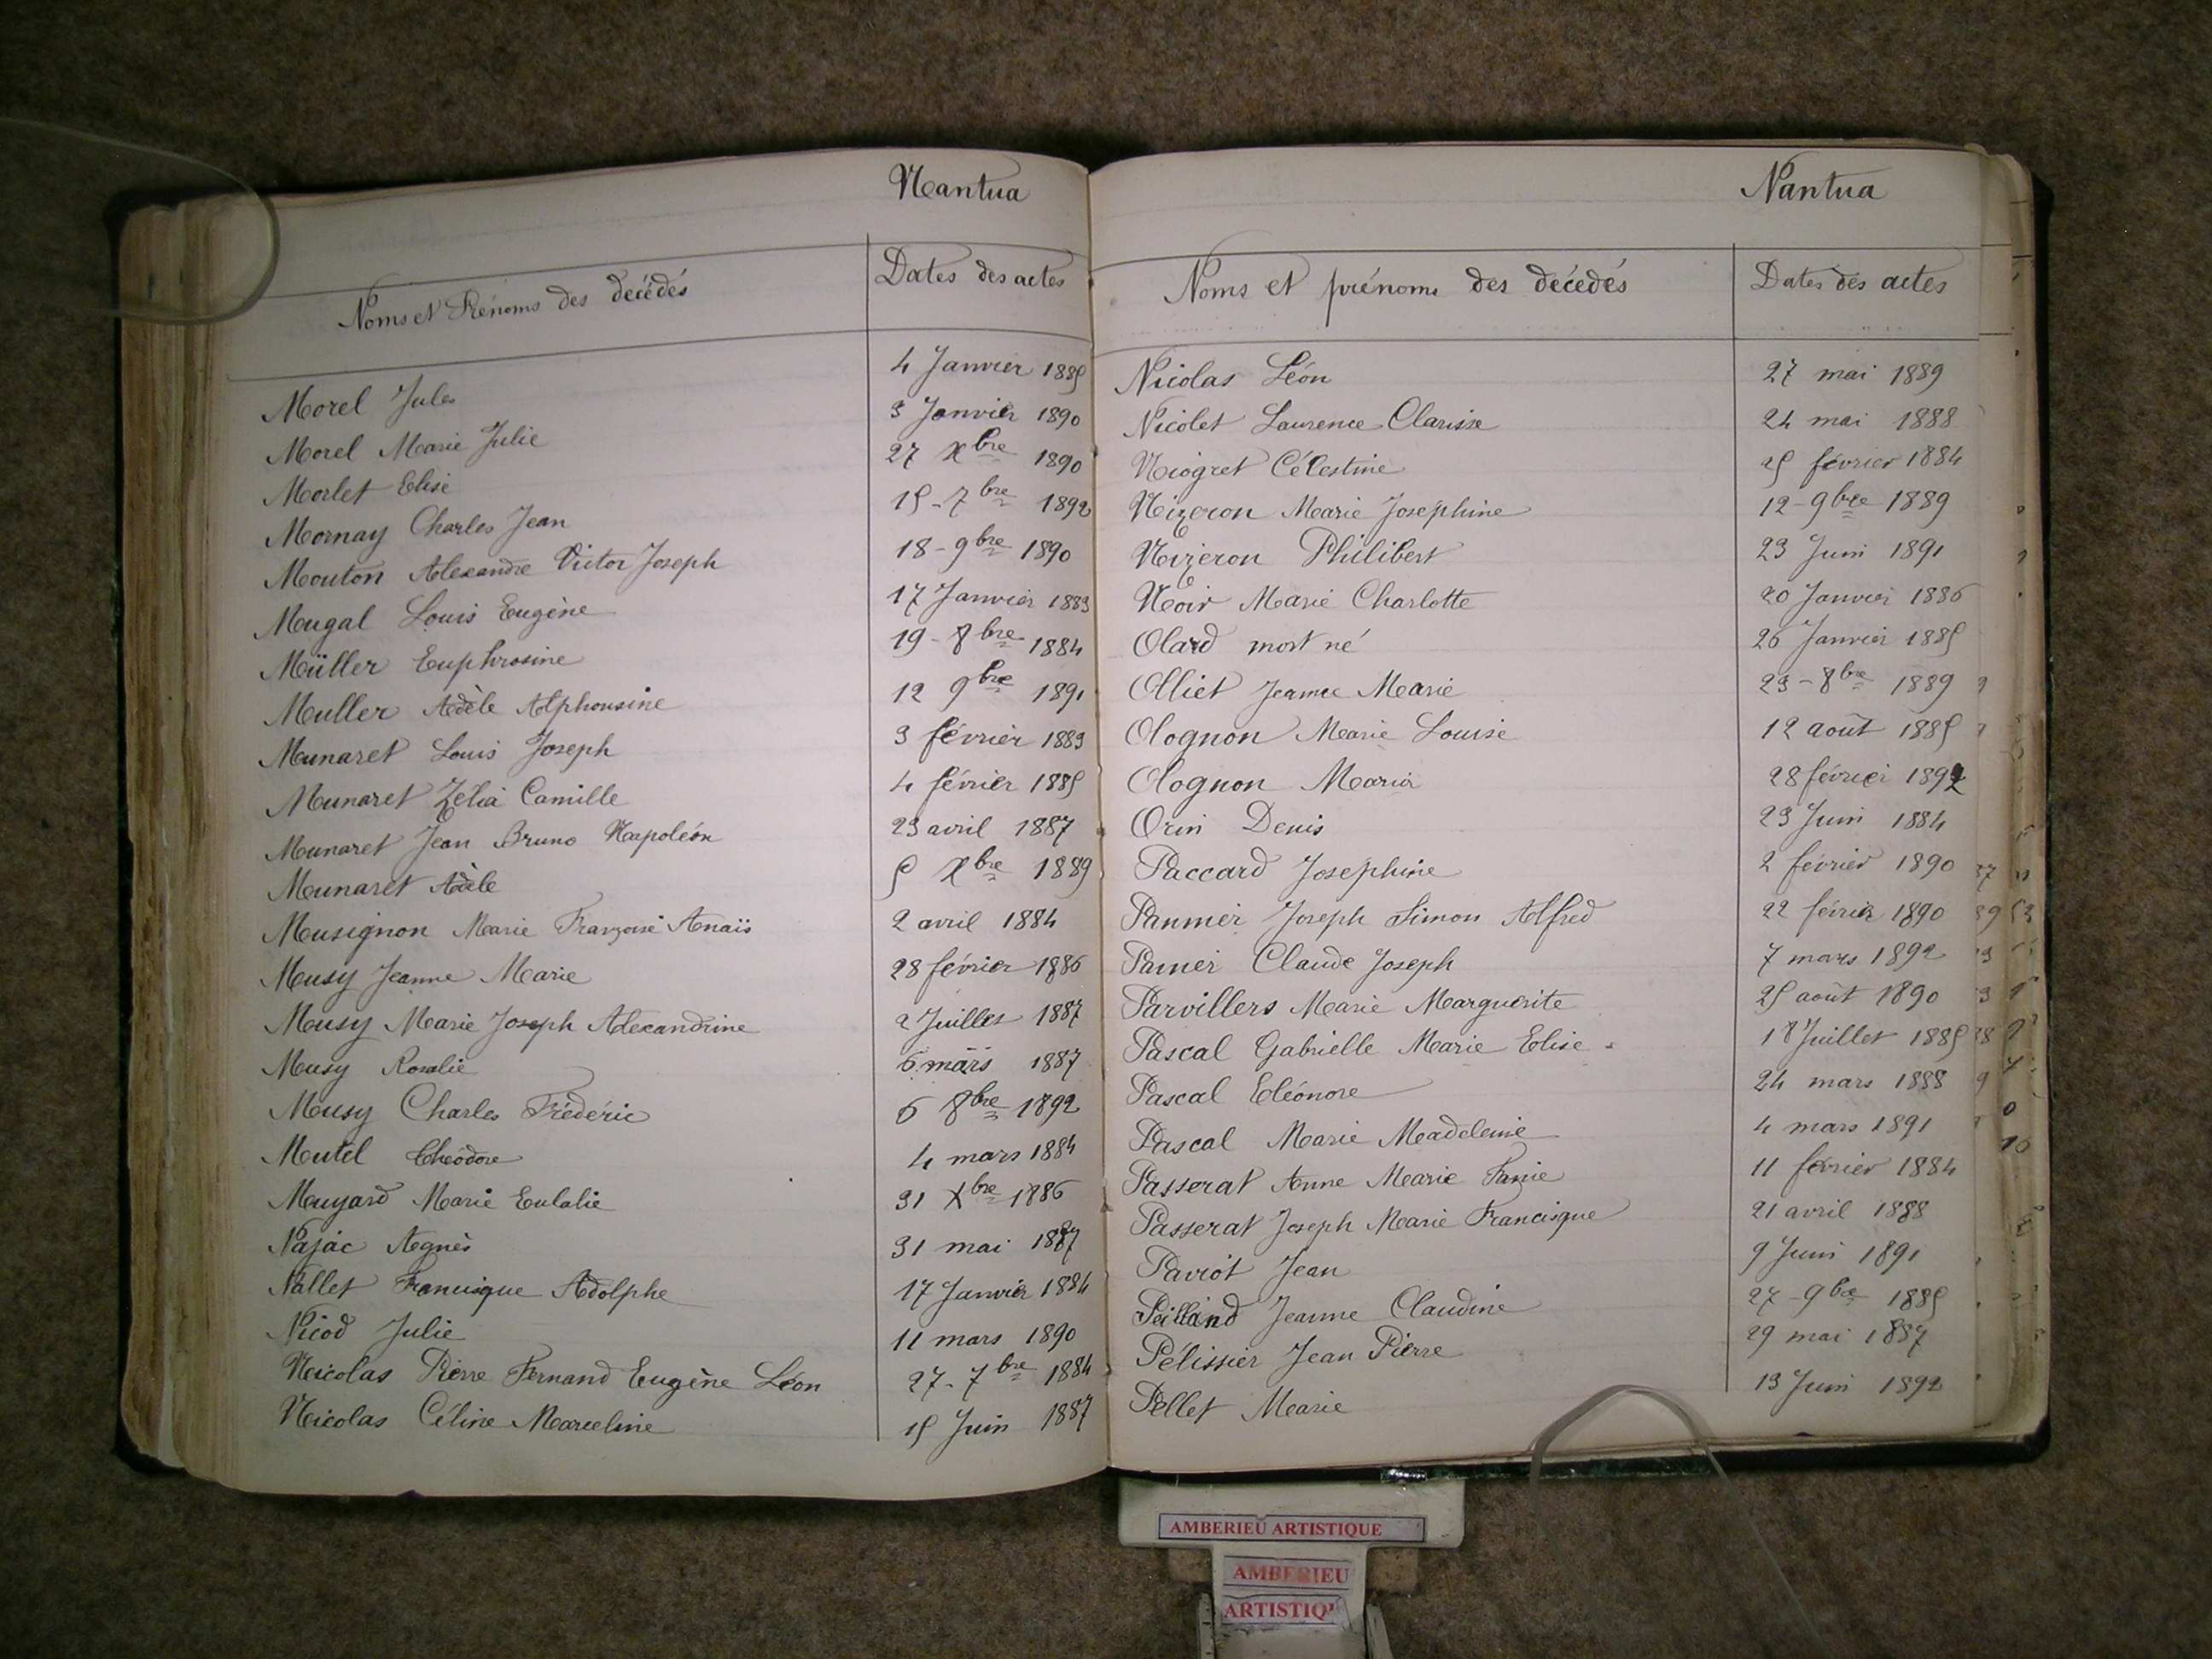 Nantua
Noms et Prénoms des décédés Dates des actes
Morel Jules 4 Janvier 1885
Morel Marie Julie 3 Janvier 1890
Morlet Elise 27 Xbre 1890
Mornay Charles Jean 15-7bre 1892
Mouton Alexandre Victor Joseph 18-9bre 1890
Mugal Louis Eugène 17 Janvier 1883
Müller Euphrosine 19-8bre 1884
Muller Adèle Alphonsine 12 9bre 1891
Munaret Louis Joseph 3 février 1883
Munaret Zélia Camille 4 février 1885
Munaret Jean Bruno Napoléon 23 avril 1887
Munaret Adèle 5 Xbre 1889
Musignon Marie Françoise Anaïs 2 avril 1884
Musy Jeanne Marie 28 février 1886
Musy Marie Joseph Alexandrine 2 Juillet 1887
Musy Rosalie 6 mars 1887
Musy Charles Frédéric 6 8bre 1892
Mutel Théodore 4 mars 1884
Muyard Marie Eulalie 31 Xbre 1886
Najac Agnès 31 mai 1887
Nallet Francisque Adolphe 17 Janvier 1884
Nicod Julie 11 mars 1890
Nicolas Pierre Fernand Eugène Léon 27-7bre 1884
Nicolas Céline Marceline 15 Juin 1887
Nantua
Noms et prénoms des décédés Dates des actes
Nicolas Léon 27 mai 1889
Nicolet Laurence Clarisse 24 mai 1888
Niogret Célestine 25 février 1884
Nizeron Marie Joséphine 12-9bre 1889
Nizeron Philibert 23 Juin 1891
Noir Marie Charlotte 20 Janvier 1886
Olard mort né 26 Janvier 1885
Olliet Jeanne Marie 23-8bre 1889
Olognon Marie Louise 12 août 1885
Olognon Maria 28 février 1892
Orin Denis 23 Juin 1884
Paccard Joséphine 2 février 1890
Panmier Joseph Simon Alfred 22 février 1890
Pamier Claude Joseph 7 mars 1892
Parvillers Marie Marguerite 25 août 1890
Pascal Gabrielle Marie Elise 18 Juillet 1885
Pascal Eléonore 24 mars 1888
Pascal Marie Madeleine 4 mars 1891
Passerat Anne Marie Fanie 11 février 1884
Passerat Joseph Marie Francisque 21 avril 1888
Paviot Jean 9 Juin 1891
Peilland Jeanne Claudine 27-9bre 1885
Pélissier Jean Pierre 29 mai 1887
Pellet Marie 13 Juin 1892
AMBERIEU ARTISTIQUE
AMBERIEU
ARTISTIQU